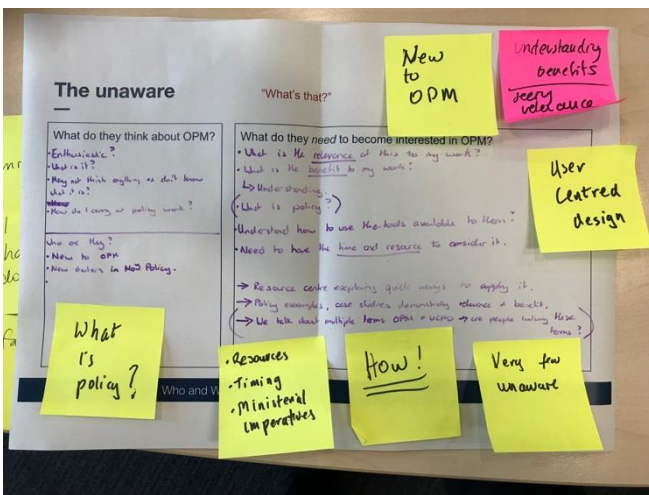 The unaware
"What's that?"
New
to
OPM
understanding
benefits
relevance
What do they think about OPM?
• Enthusiastic?
• What is it?
• May not think anything as don't know
what it is?
• How do I carry out policy work?
Who are they?
• New to OPM
• New starters in MoJ Policy.
What do they need to become interested in OPM?
• What is the relevance of this to my work?
• What is the benefit to my work?
↳ Understanding.
(• What is policy?)
• Understand how to use the tools available to them?
• Need to have the time and resource to consider it.
→ Resource centre explaining quick ways to apply it.
→ Policy examples, case studies demonstrating relevance + benefit.
(→ We talk about multiple terms OPM + UCPD → are people linking these
terms?)
User
Centred
design
What
is
policy?
Who and W
• Resources
• Timing
• Ministerial
imperatives
How!
Very few
unaware